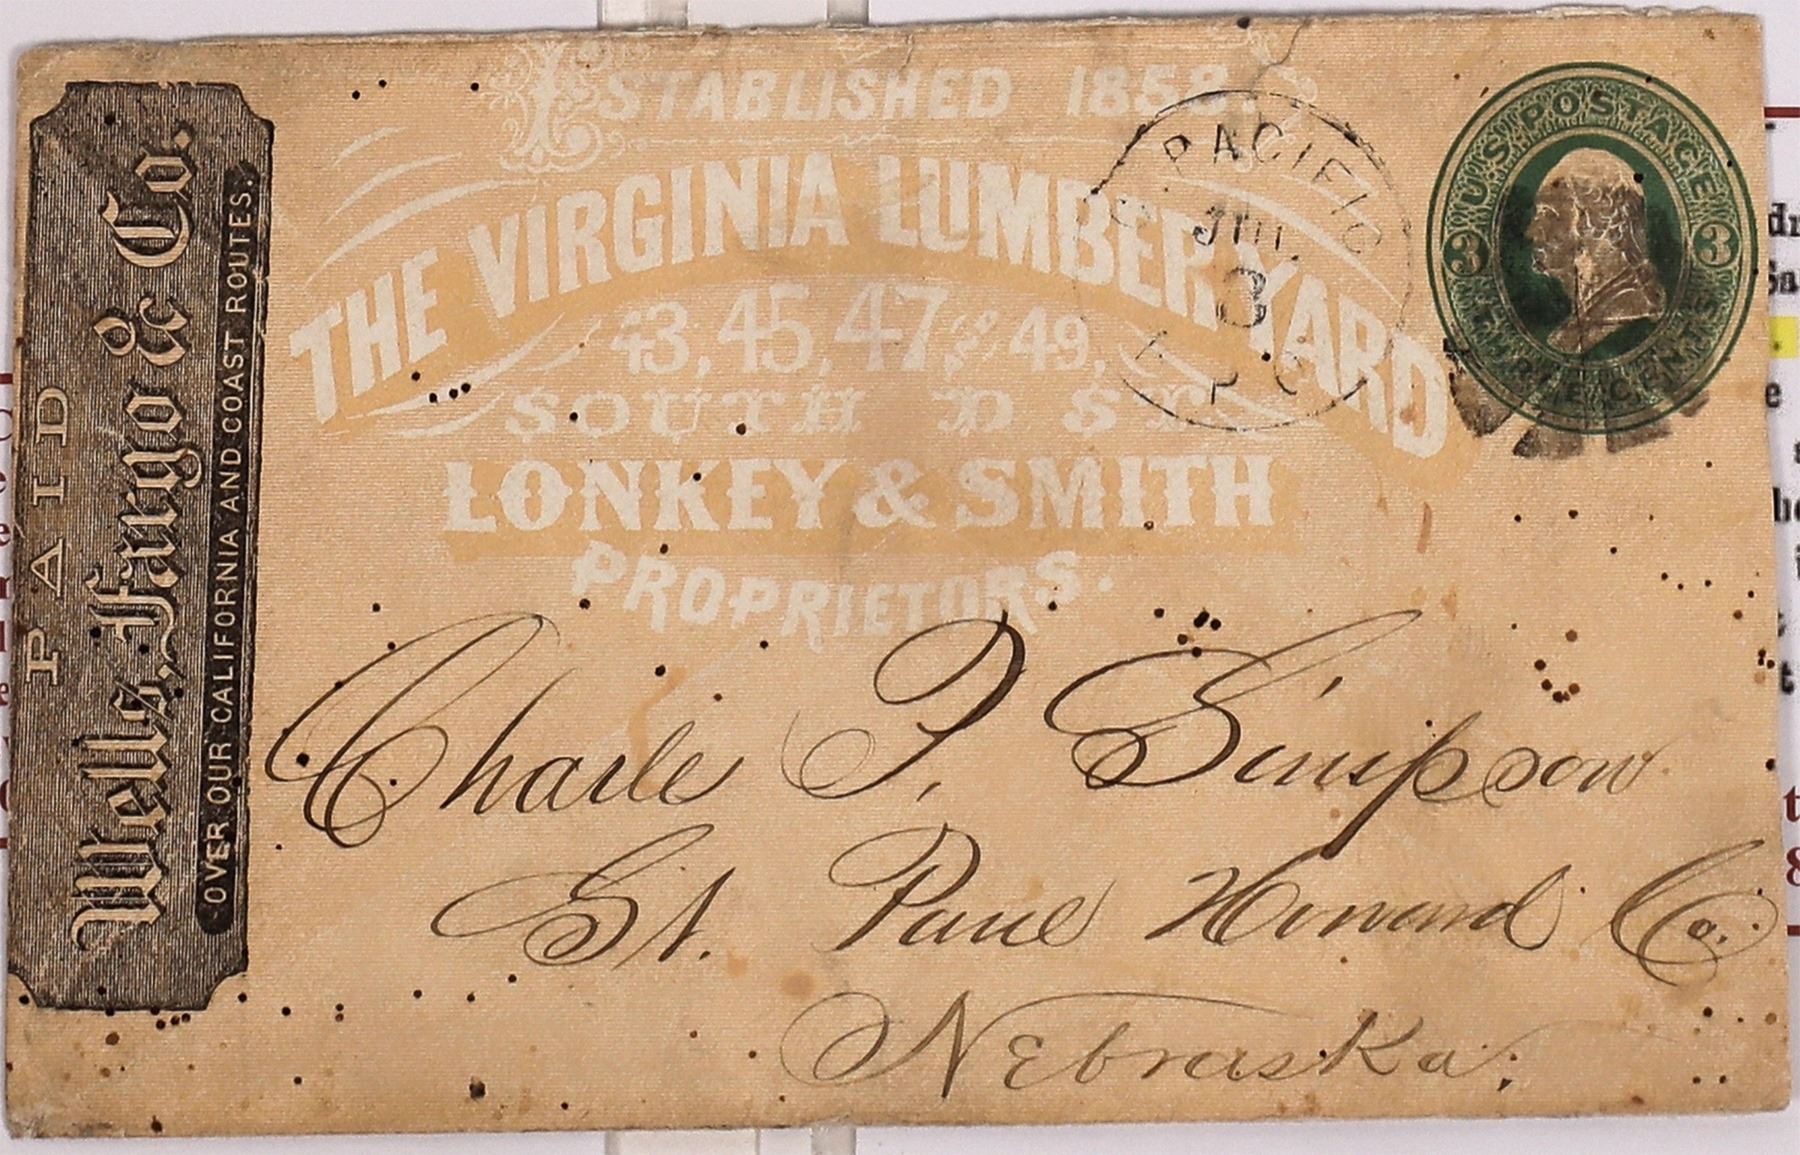 PAID
Wells, Fargo & Co.
OVER OUR CALIFORNIA AND COAST ROUTES.
ESTABLISHED 1858.
THE VIRGINIA LUMBER YARD
43, 45, 47 and 49,
SOUTH D ST.
LONKEY & SMITH
PROPRIETORS.
PACIFIC
JUL
3
U.S. POSTAGE
3 3
THREE CENTS
Charle P. Simpson
St. Paul Howard Co.
Nebraska.